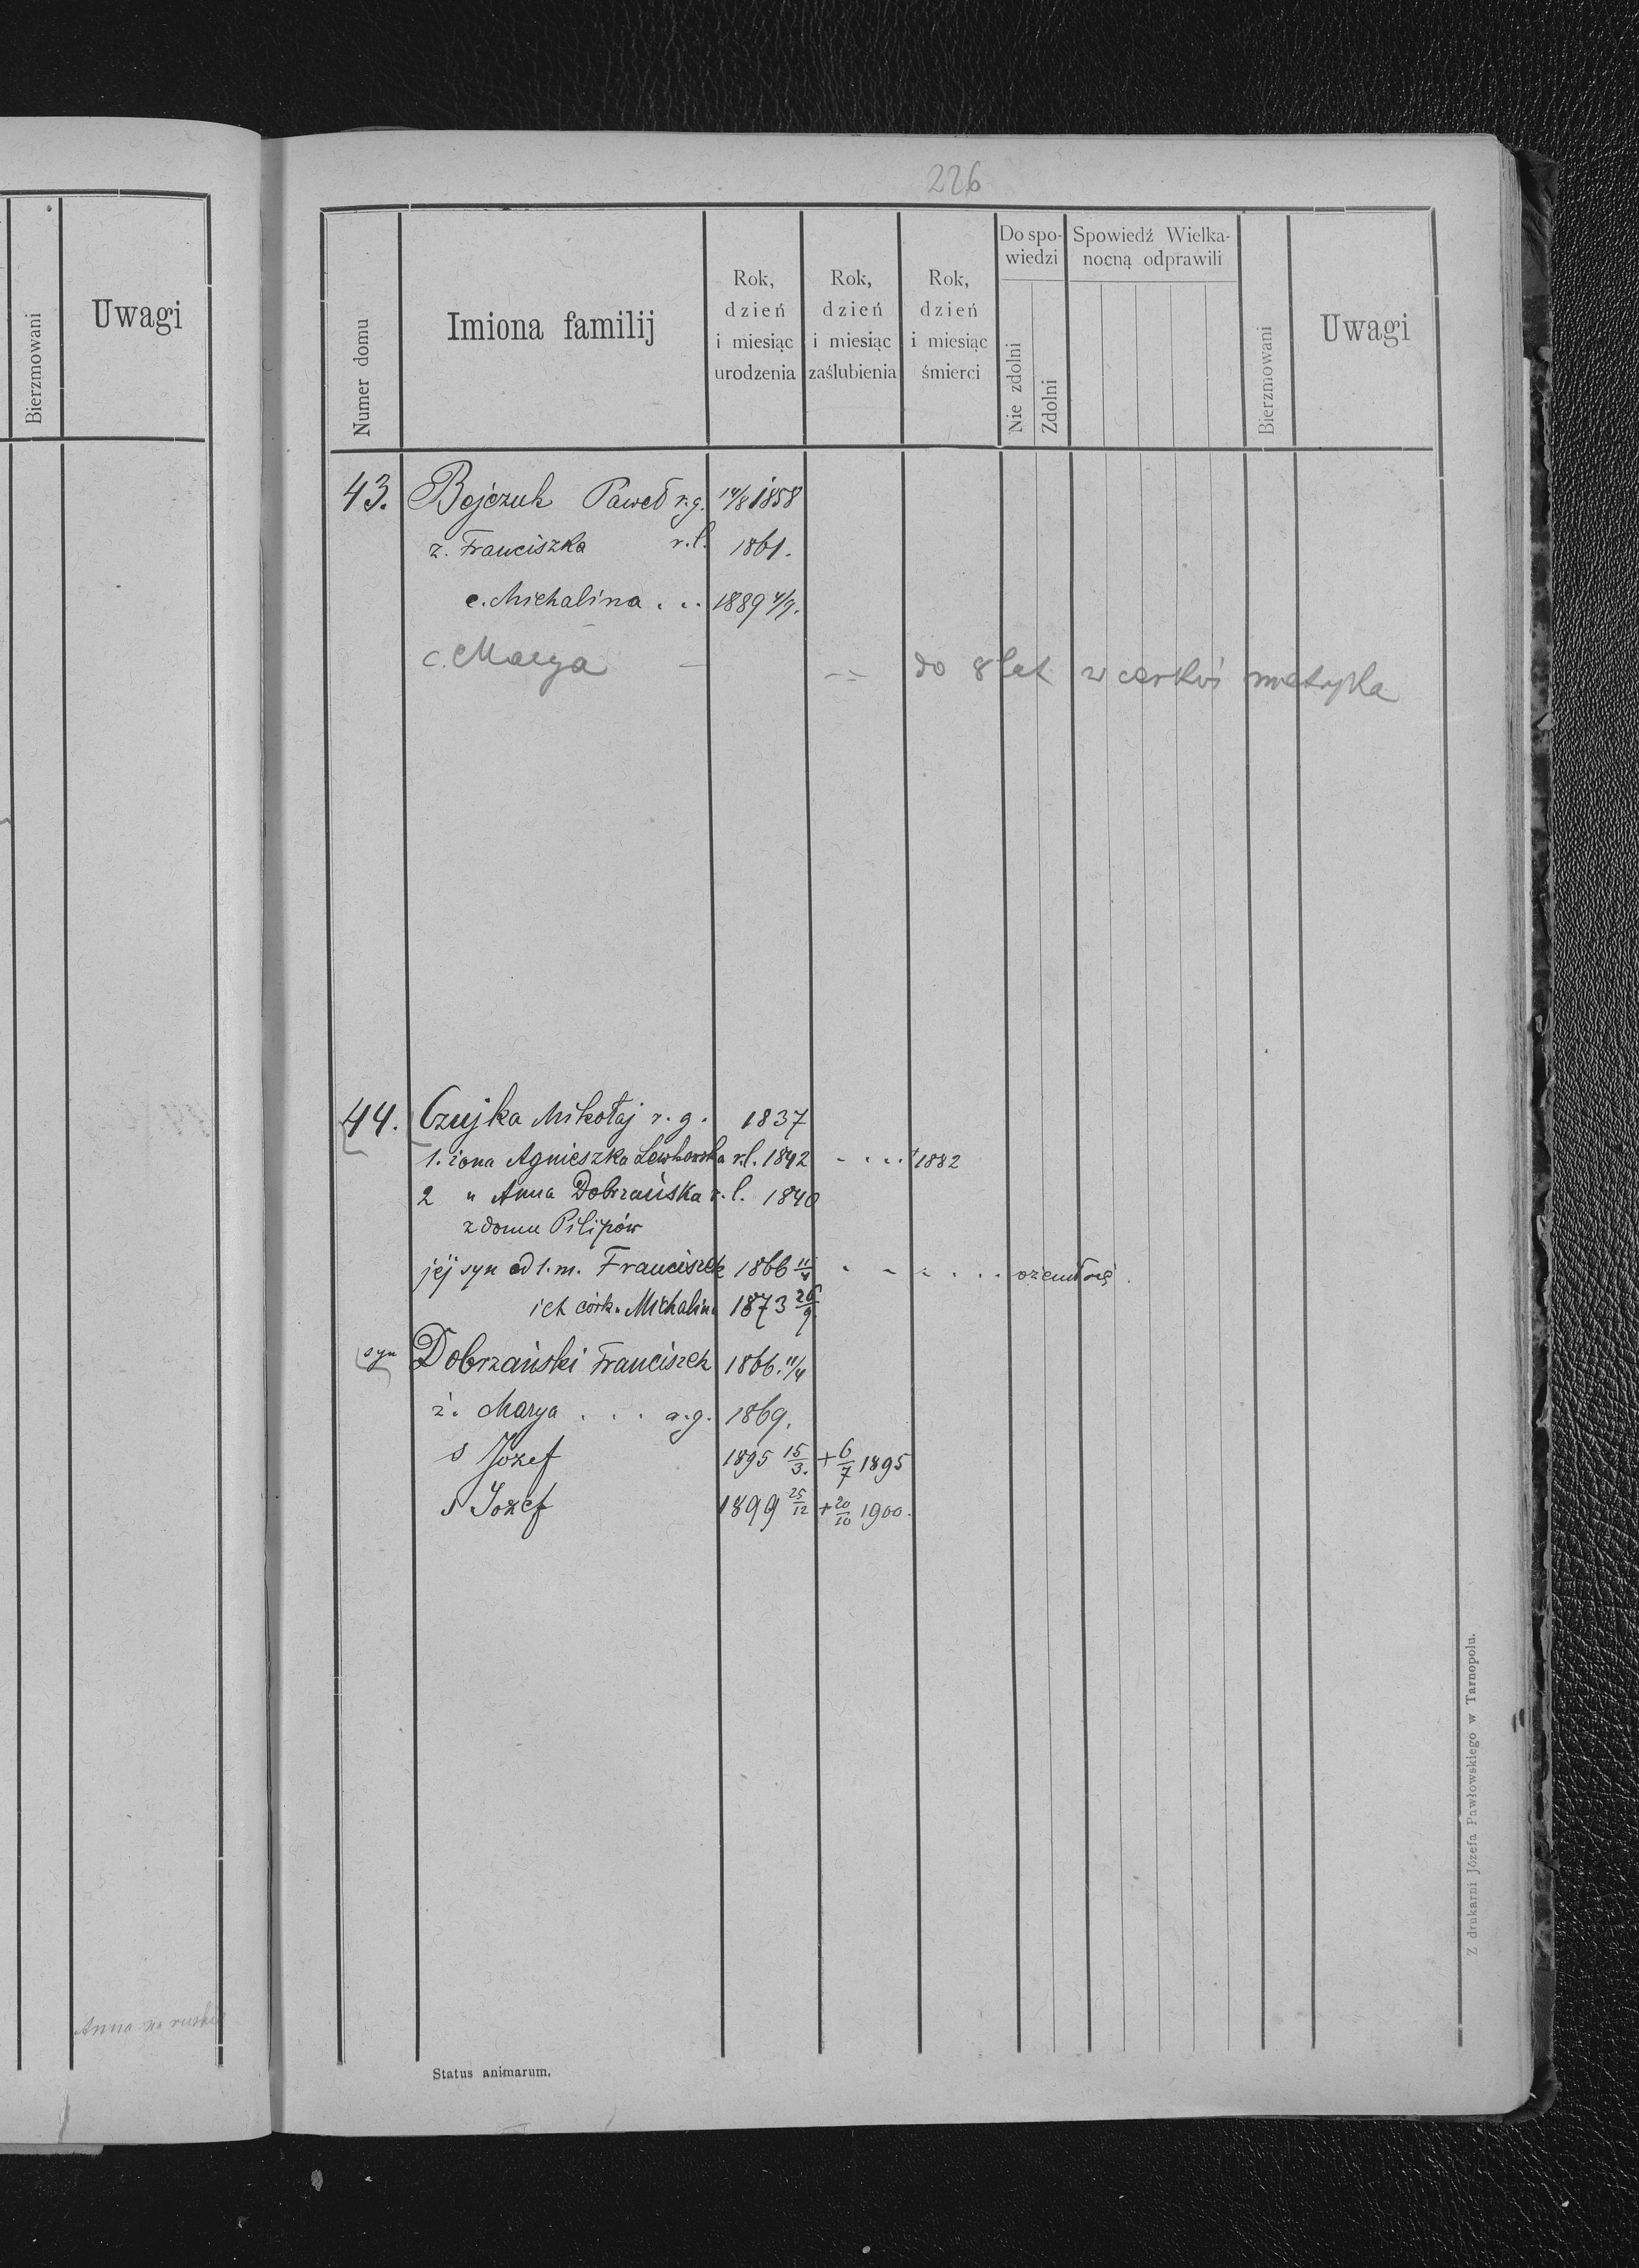 Bierzmowani
Uwagi
226
Numer domu
Imiona familij
Rok,
dzień
i miesiąc
urodzenia
Rok,
dzień
i miesiąc
zaślubienia
Rok,
dzień
i miesiąc
śmierci
Do spo-
wiedzi
Nie zdolni
Zdolni
Spowiedź Wielka-
nocną odprawili
Bierzmowani
Uwagi
43. Bojczuk Paweł r.g. 14/8 1858
ż. Franciszka r.l. 1861.
c. Michalina . . . 1889 4/9.
c. Marya — -- do 8 lat w cerkwi metryka
44. Czujka Mikołaj r. g. 1837
1. żona Agnieszka r.l. 1842 - . . . † 1882
2 " Anna Dobrzańska r. l. 1840
z domu Pilipów
jéj syn od 1. m. Franciszek 1866 11/4 . - - . . . ożenił się.
ich córka Michalina 1873 26/9
syn Dobrzański Franciszek 1866. 11/4
ż. Marya . . . r.g. 1869.
s Józef 1895 15/3. + 6/7 1895
s Józef 1899 25/12 + 20/10 1900.
Anna na
Status animarum.
Z drukarni Józefa Pawłowskiego w Tarnopolu.